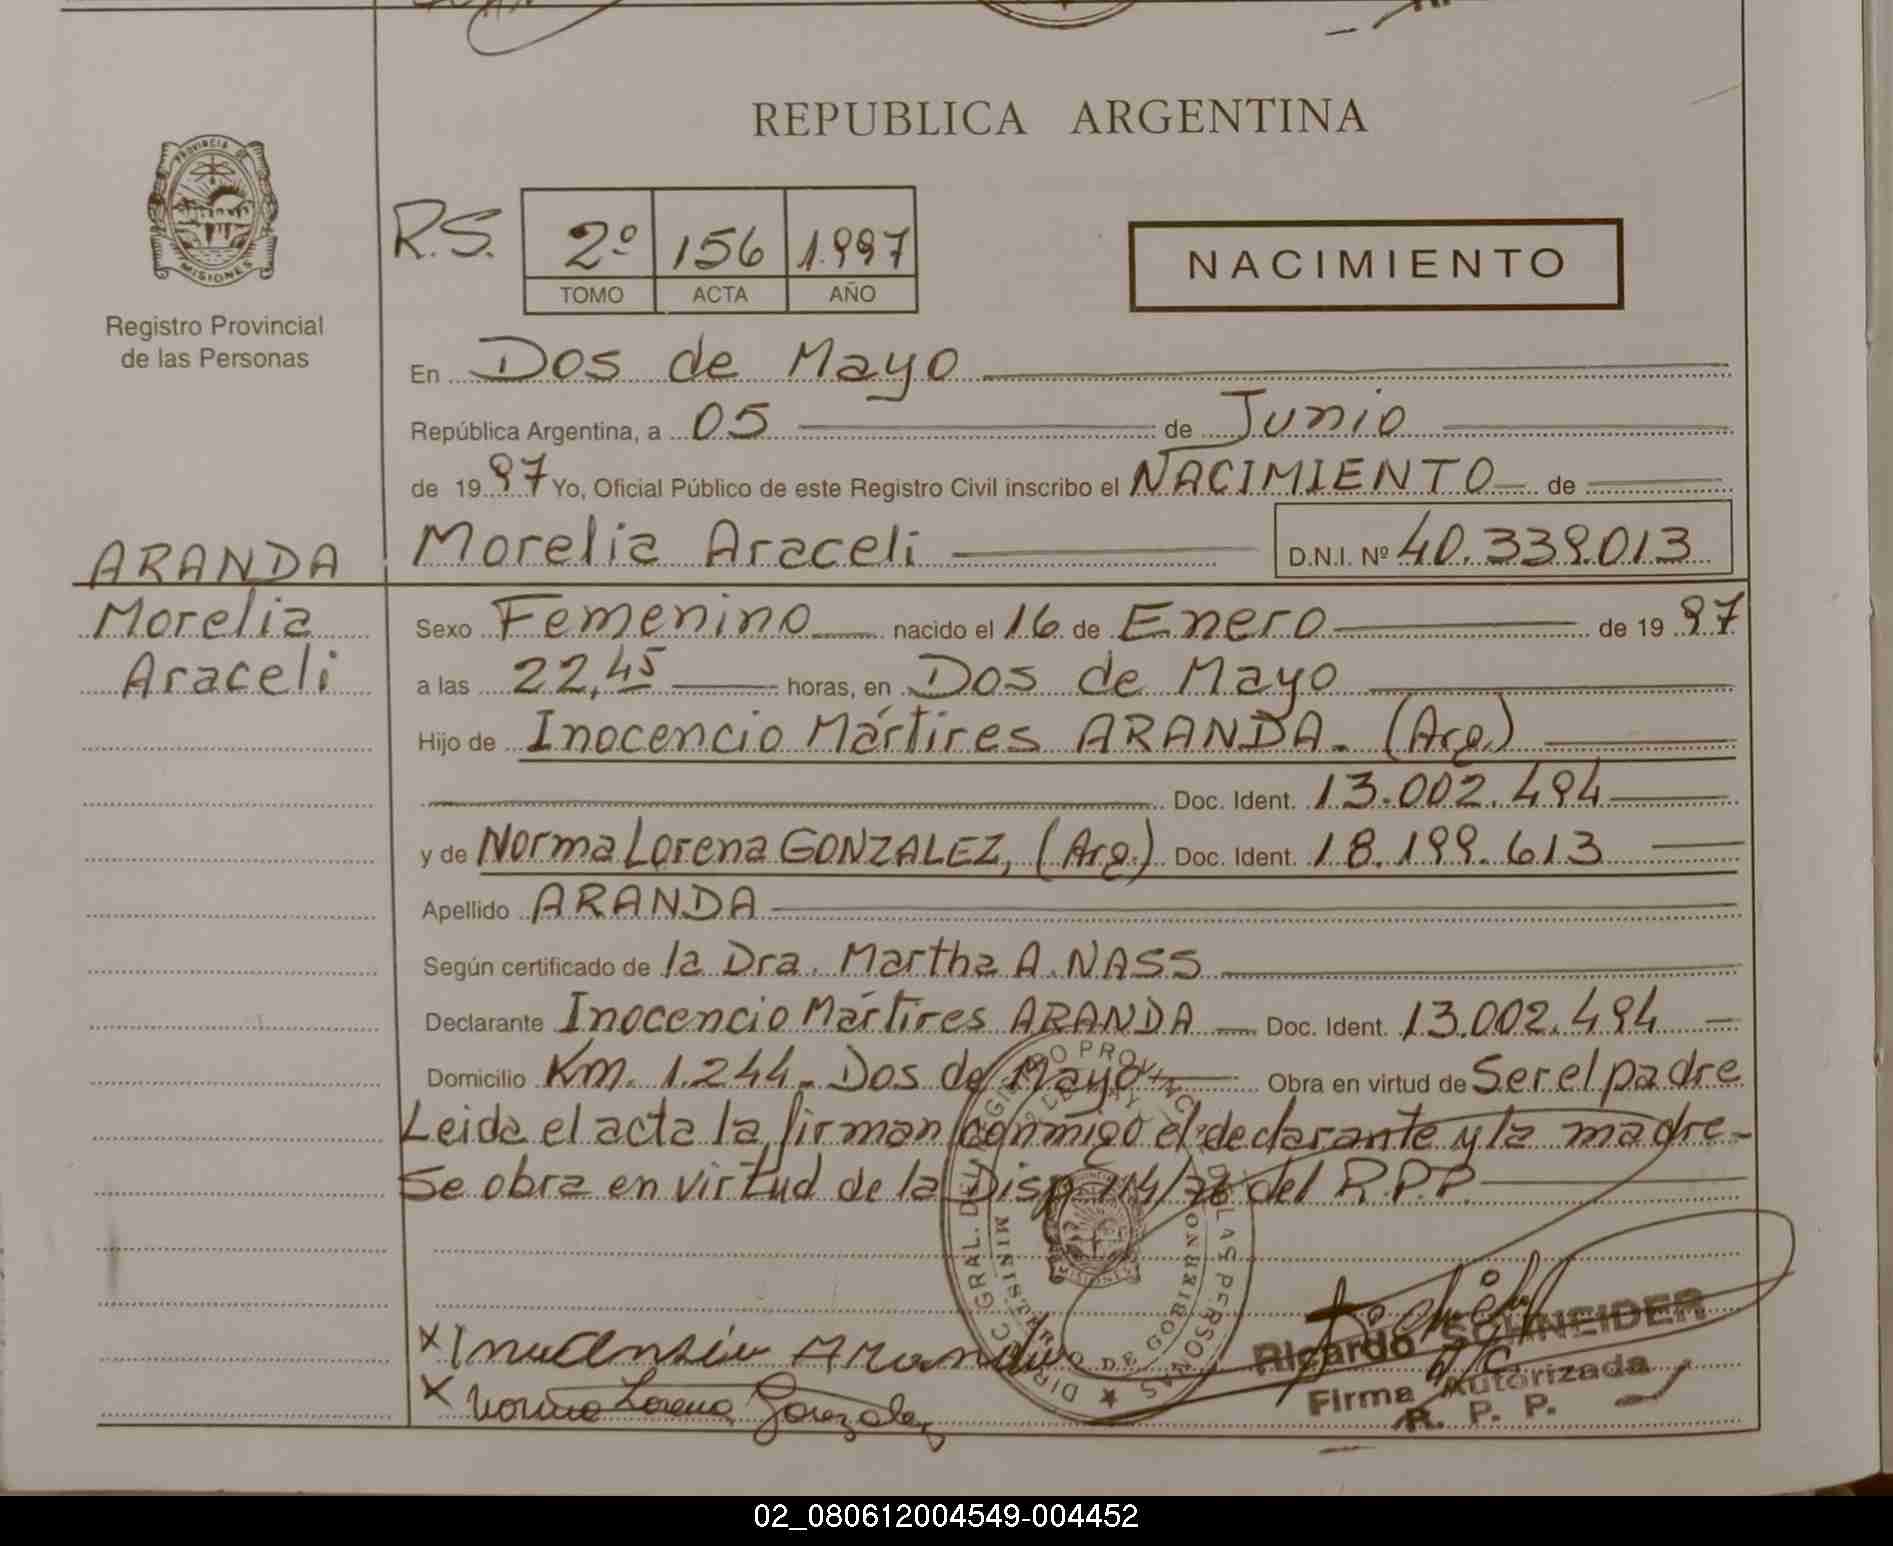 REPUBLICA ARGENTINA
PROVINCIA DE
MISIONES
Registro Provincial
de las Personas
R.S. 2º 156 1.997
TOMO ACTA AÑO
NACIMIENTO
En Dos de Mayo
República Argentina, a 05 de Junio
de 19 97 Yo, Oficial Público de este Registro Civil inscribo el NACIMIENTO de
ARANDA
Morelia
Araceli
Morelia Araceli D.N.I. Nº 40.339.013
Sexo Femenino nacido el 16 de Enero de 19 97
a las 22,45 horas, en Dos de Mayo
Hijo de Inocencio Mártires ARANDA. (Arg.)
Doc. Ident. 13.002.494
y de Norma Lorena GONZALEZ, (Arg.) Doc. Ident. 18.199.613
Apellido ARANDA
Según certificado de la Dra. Martha A. NASS
Declarante Inocencio Mártires ARANDA Doc. Ident. 13.002.494
Domicilio Km. 1.244. Dos de Mayo Obra en virtud de Ser el padre
Leida el acta la firman conmigo el declarante y la madre-
Se obra en virtud de la Disp. del R.P.P.
MINISTERIO DE GOBIERNO
x Aranda
x Norma Lorena Gonzalez
Ricardo SCHNEIDER
Firma Autorizada
R. P. P.
02_080612004549-004452